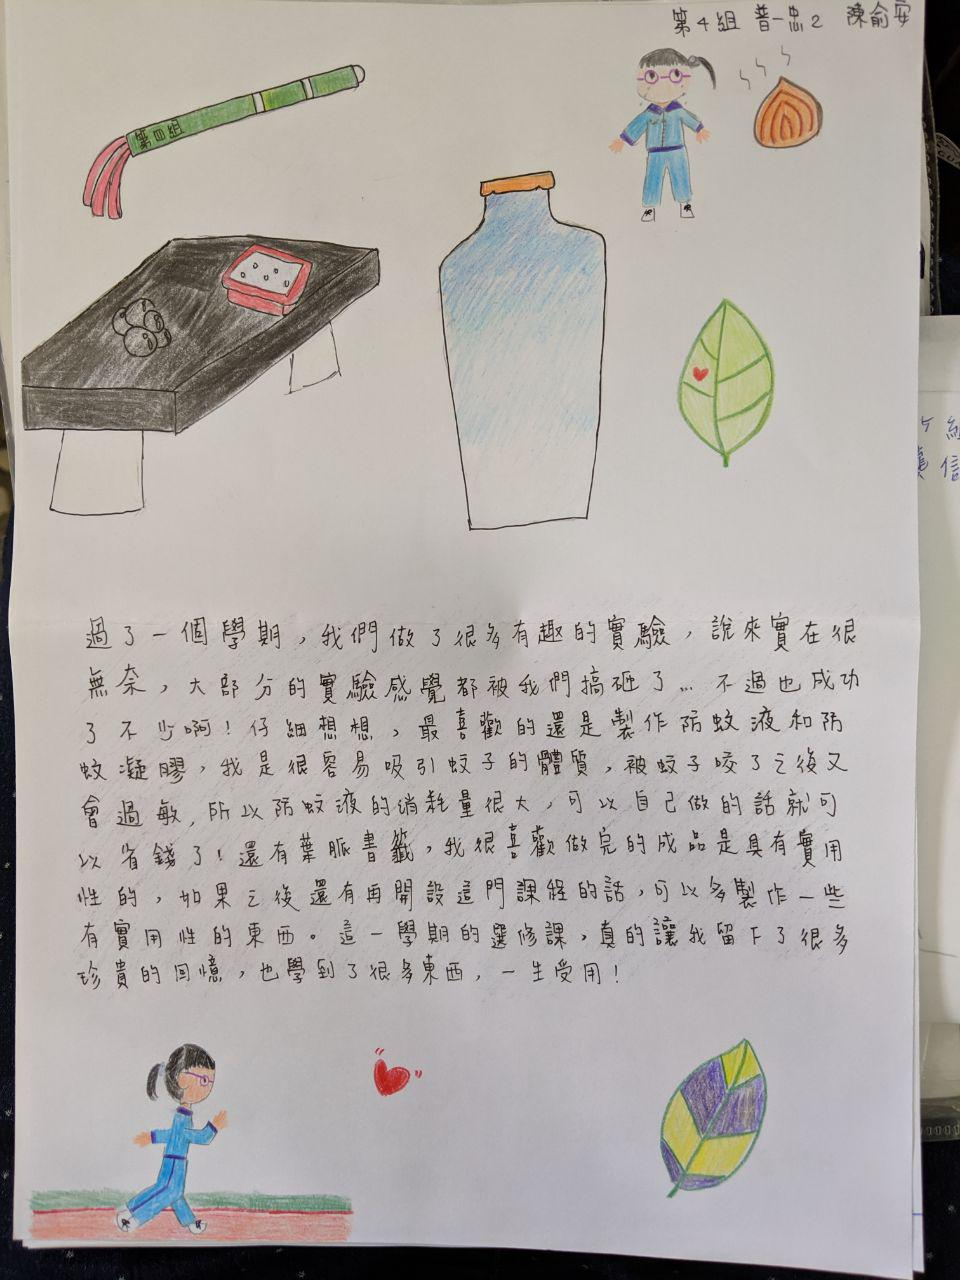 第4組 普一忠2 陳俞安
第四組
過了一個學期，我們做了很多有趣的實驗，說來實在很
無奈，大部分的實驗感覺都被我們搞砸了…不過也成功
了不少啊！仔細想想，最喜歡的還是製作防蚊液和防
蚊凝膠，我是很容易吸引蚊子的體質，被蚊子咬了之後又
會過敏，所以防蚊液的消耗量很大，可以自己做的話就可
以省錢了！還有葉脈書籤，我很喜歡做完的成品是具有實用
性的，如果之後還有再開設這門課程的話，可以多製作一些
有實用性的東西。這一學期的選修課，真的讓我留下了很多
珍貴的回憶，也學到了很多東西，一生受用！